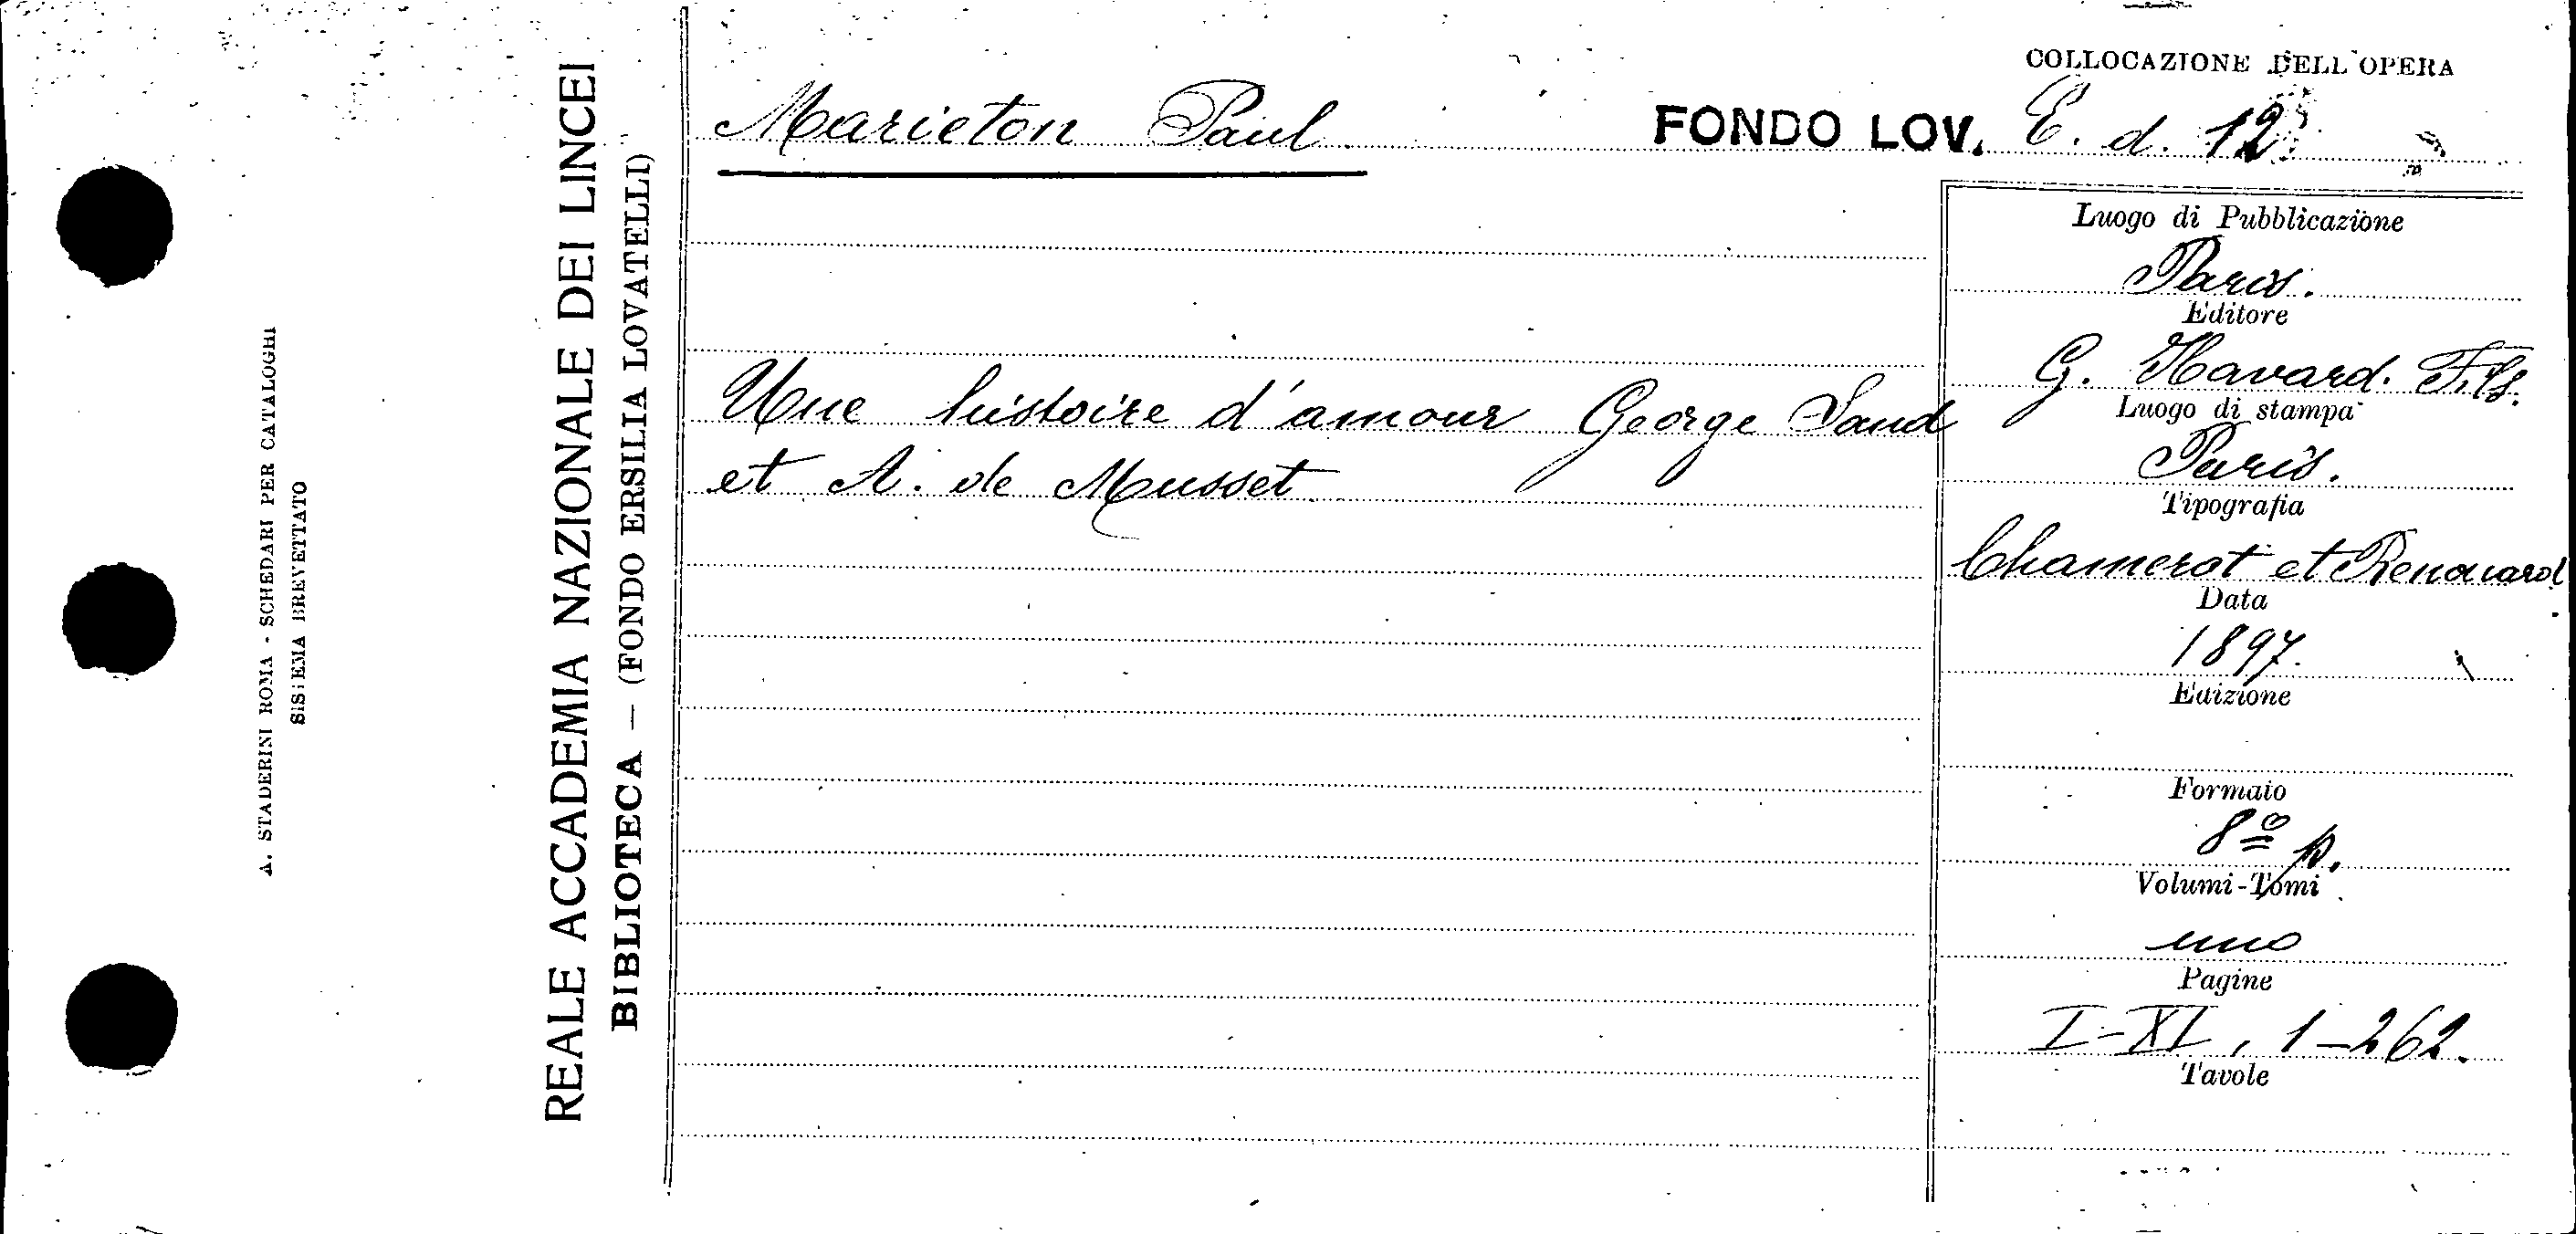 A. STADERINI ROMA - SCHEDARI PER CATALOGHI
SISTEMA BREVETTATO
REALE ACCADEMIA NAZIONALE DEI LINCEI
BIBLIOTECA — (FONDO ERSILIA LOVATELLI)
COLLOCAZIONE DELL'OPERA
Marieton Paul.
FONDO LOV. E. d. 12
Une histoire d'amour George Sand
et A. de Musset
Luogo di Pubblicazione
Paris.
Editore
G. Havard. Fils.
Luogo di stampa
Paris.
Tipografia
Chamerot et Renouard
Data
1897.
Edizione
Formato
8º p.
Volumi-Tomi
uno
Pagine
I-XI, 1-262.
Tavole